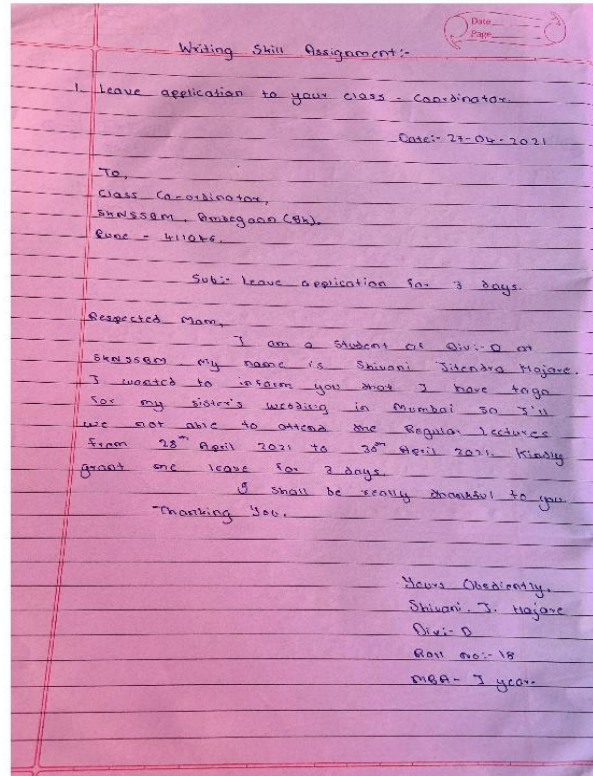 Date
Page
Writing Skill Assignment:-
1. Leave application to your class - Coordinator.
Date:- 27-04-2021
To,
Class Co-ordinator,
SKNSSBM, Ambegaon (Bk).
Pune - 411046.
Sub:- Leave application for 3 days.
Respected Mam,
I am a student of Div:- D of
SKNSSBM my name is Shivani Jitendra Hajare.
I wanted to inform you that I have togo
for my sister's wedding in Mumbai so I'll
we not able to attend the Regular Lectures
from 28th April 2021 to 30th April 2021. Kindly
grant me leave for 3 days.
I shall be really thankful to you.
Thanking You.
Yours Obediently,
Shivani. J. Hajare
Div:- D
Roll no:- 18
MBA - I year.